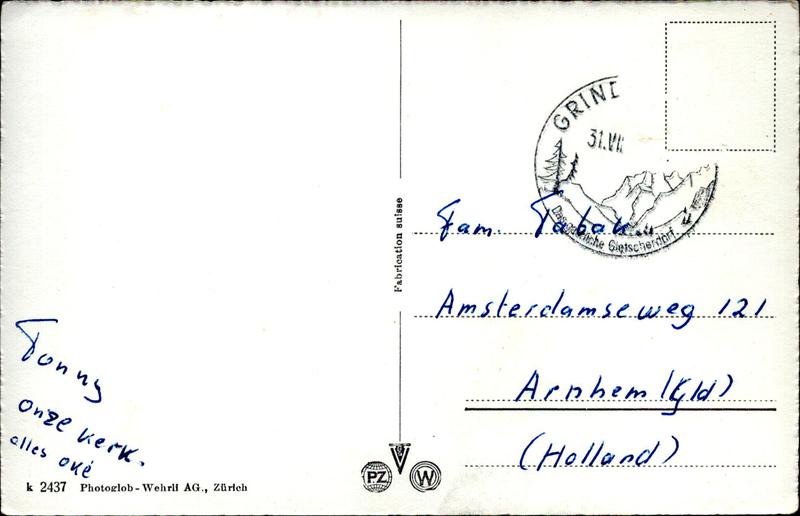 Tonny
onze kerk.
alles oké
k 2437 Photoglob-Wehrli AG., Zürich
Fabrication suisse
PZ
W
GRIND
31.VII
Gletscherdorf
Fam. Tabak.
Amsterdamseweg 121
Arnhem (Gld)
(Holland)